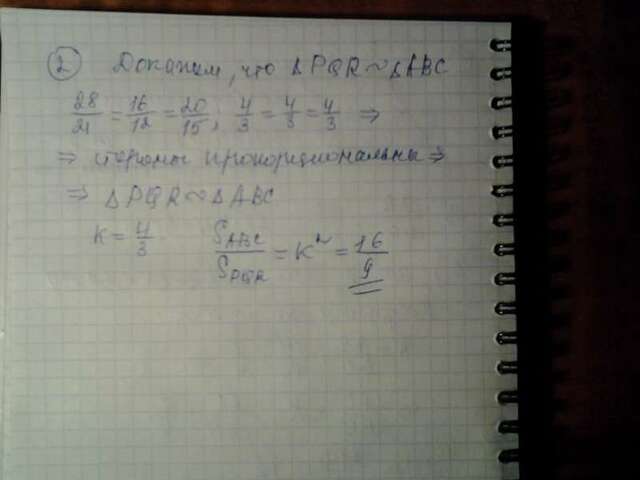 ② Докажем, что △PQR ~ △ABC
28/21 = 16/12 = 20/15; 4/3 = 4/3 = 4/3 ⇒
⇒ стороны пропорциональны ⇒
⇒ △PQR ~ △ABC
K = 4/3 S_ABC/S_PQR = K² = 16/9